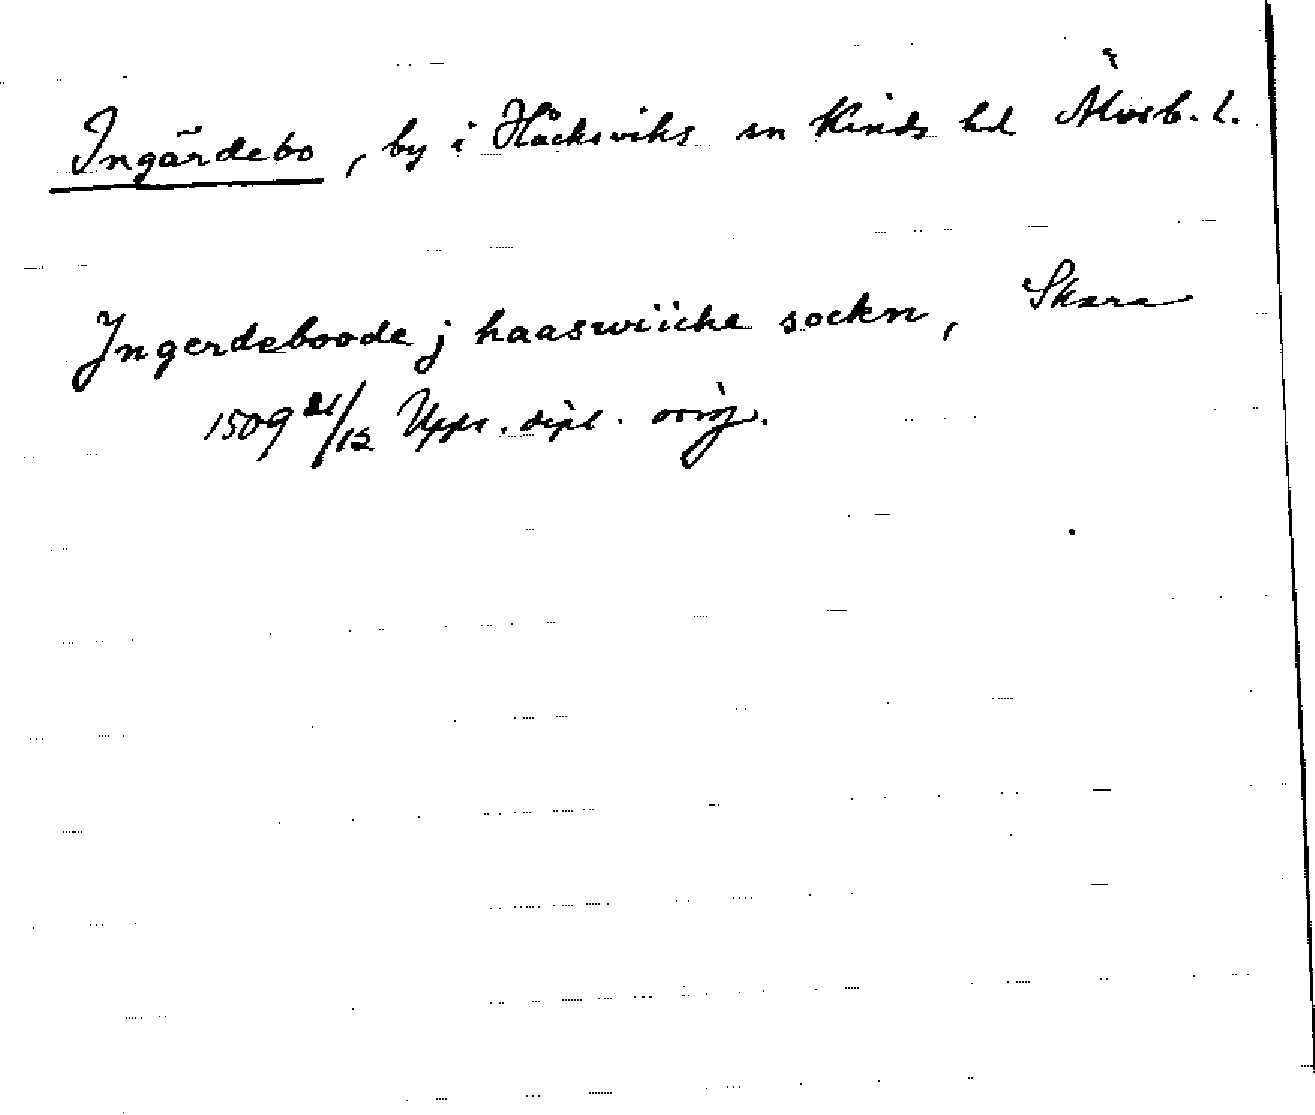 Ingärdebo, by i Håcksviks sn Kinds hd Älvsb. l.
Jngerdeboode j haaswiiche sockn, Skara
1509 21/12 Upps. dipl. orig.